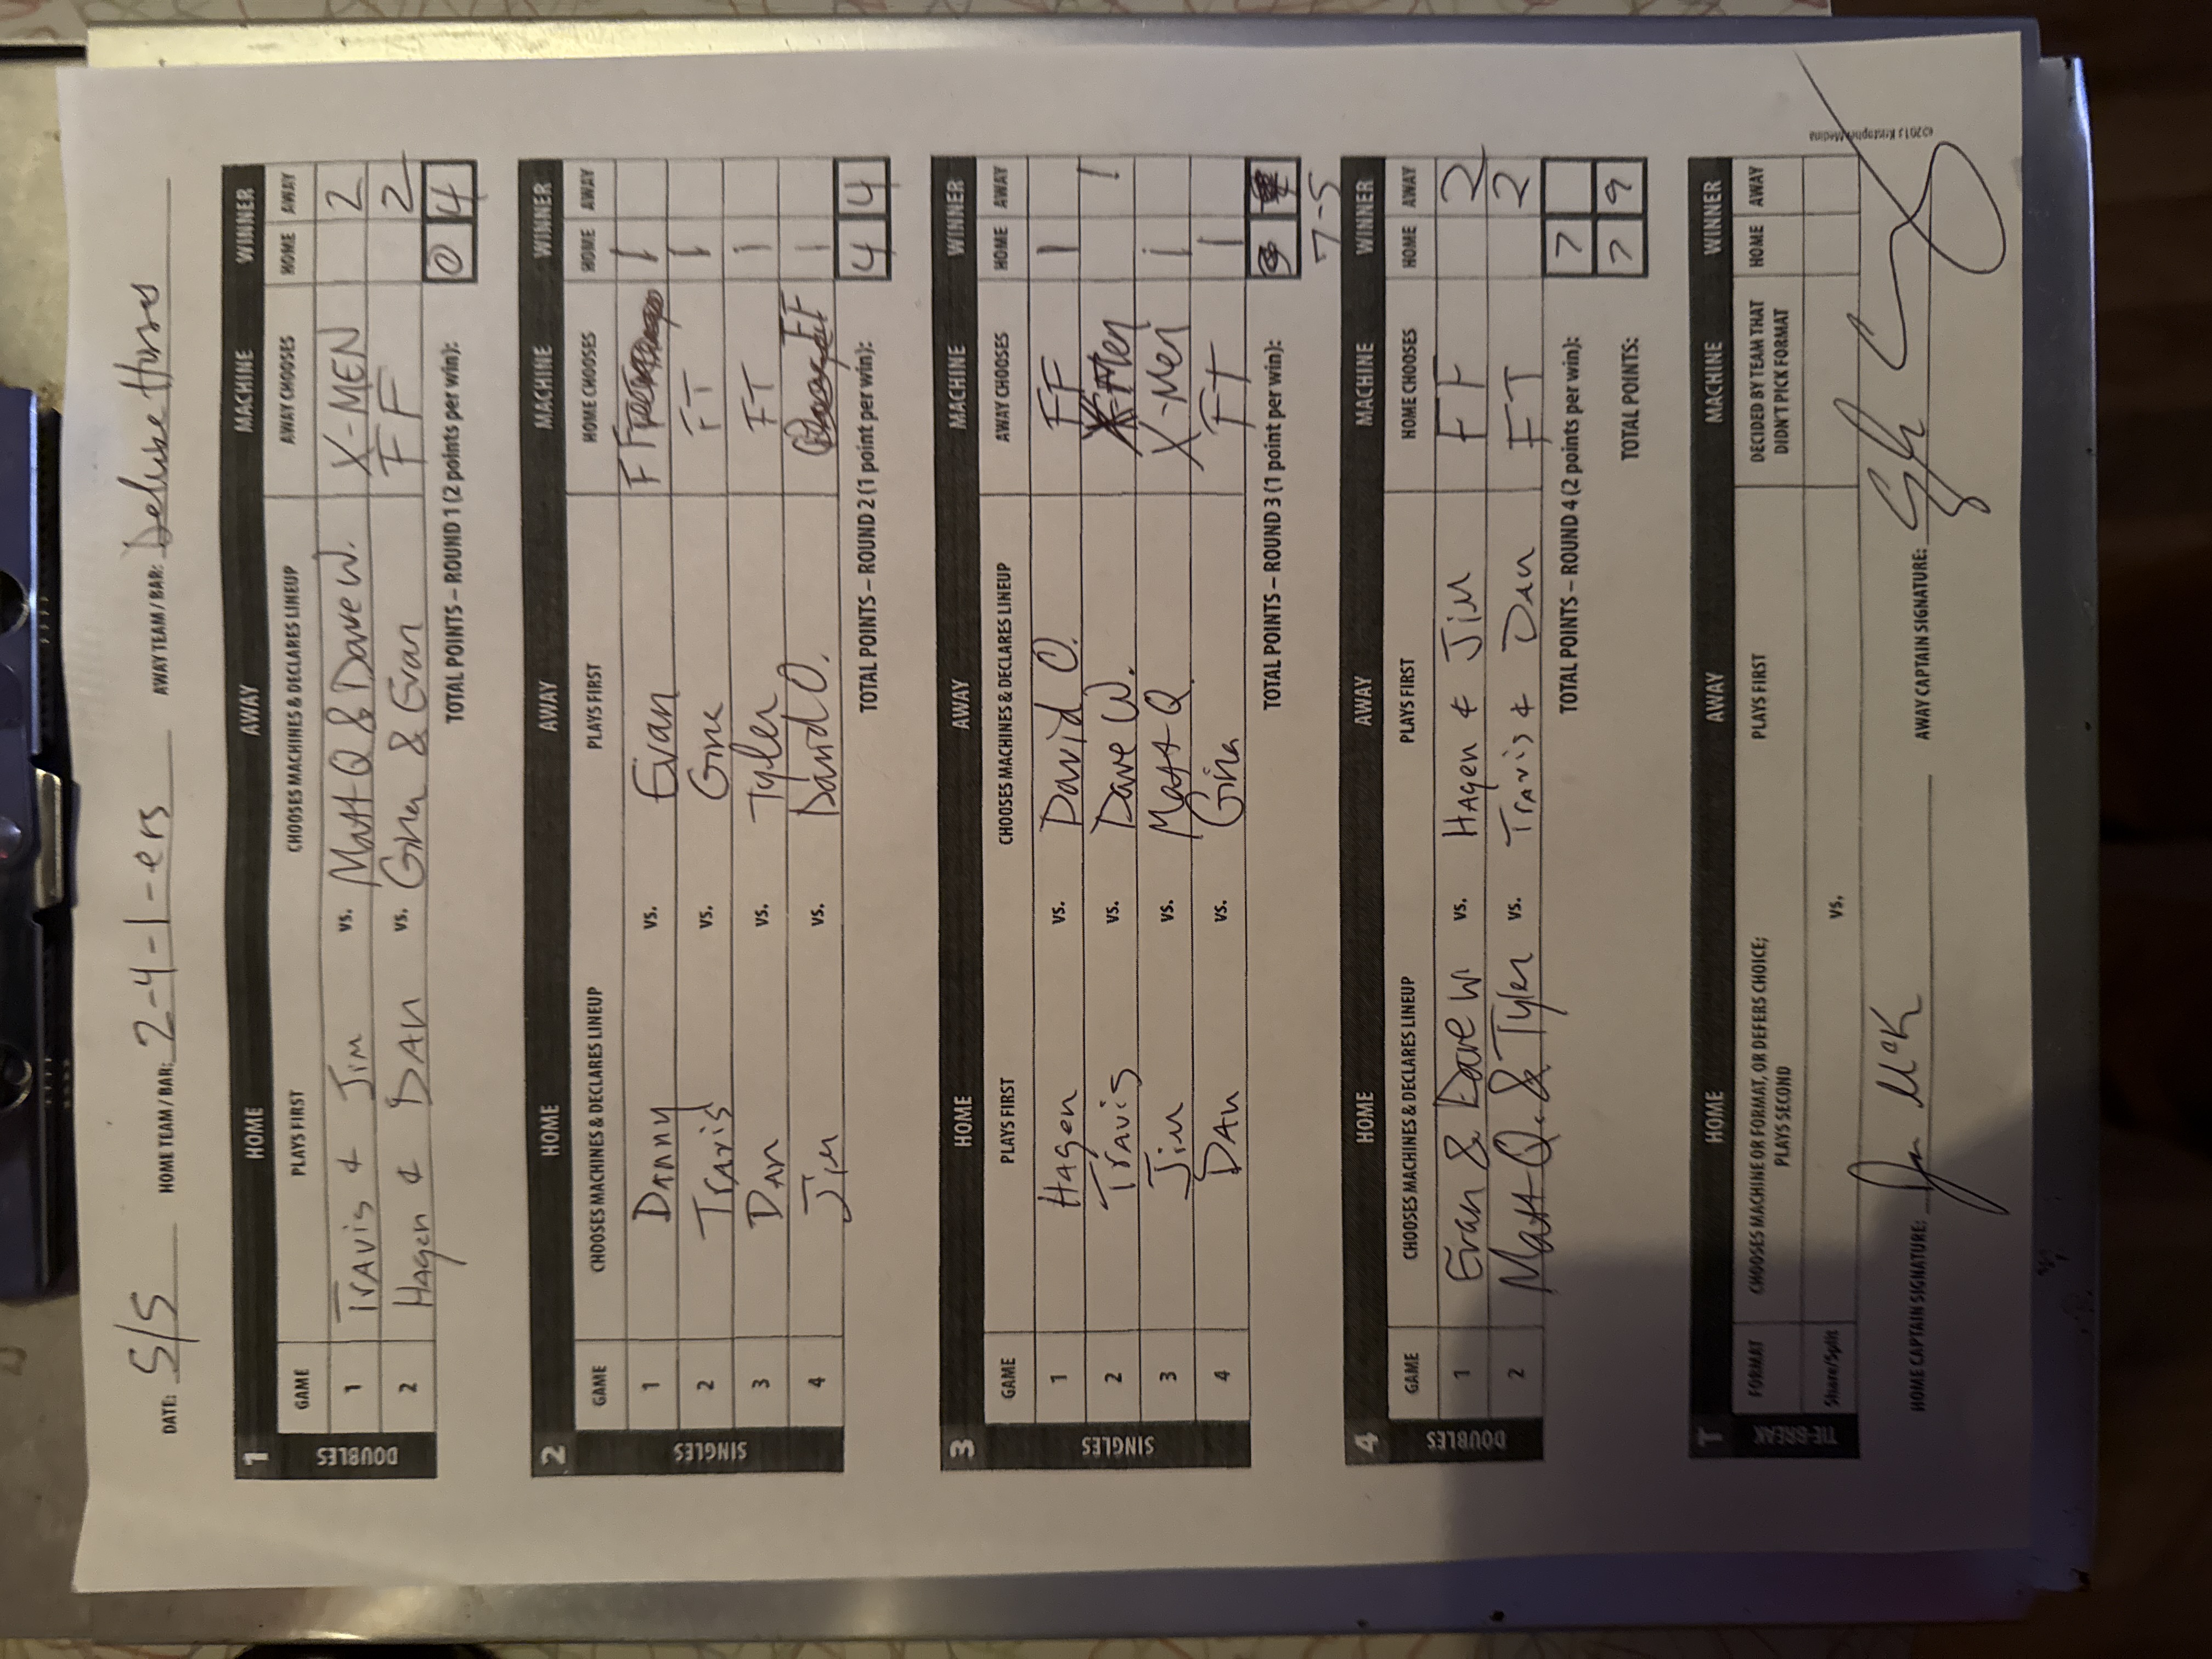 DATE: 5/5 HOME TEAM / BAR: 2-4-1-ers AWAY TEAM / BAR: Deluxe
1 HOME AWAY MACHINE WINNER
GAME PLAYS FIRST CHOOSES MACHINES & DECLARES LINEUP AWAY CHOOSES HOME AWAY
DOUBLES
1 Travis & Jim vs. Matt Q & Dave W. X-MEN 2
2 Hagen & DAn vs. Gina & Evan FF 2
TOTAL POINTS – ROUND 1 (2 points per win): 0 4
2 HOME AWAY MACHINE WINNER
GAME CHOOSES MACHINES & DECLARES LINEUP PLAYS FIRST HOME CHOOSES HOME AWAY
SINGLES
1 DAnny vs. Evan FT 1
2 TrAvis vs. Gina FT 1
3 DAn vs. Tyler FT 1
4 Jim vs. David O. FF 1
TOTAL POINTS – ROUND 2 (1 point per win): 4 4
3 HOME AWAY MACHINE WINNER
GAME PLAYS FIRST CHOOSES MACHINES & DECLARES LINEUP AWAY CHOOSES HOME AWAY
SINGLES
1 HAgen vs. David O. FF 1
2 TrAvis vs. Dave W. X-Men 1
3 Jim vs. Matt Q. X-Men 1
4 DAn vs. Gina FT 1
TOTAL POINTS – ROUND 3 (1 point per win):
7-5
4 HOME AWAY MACHINE WINNER
GAME CHOOSES MACHINES & DECLARES LINEUP PLAYS FIRST HOME CHOOSES HOME AWAY
DOUBLES
1 Evan & Dave W vs. HAgen & Jim FF 2
2 Matt Q. & Tyler vs. TrAvis & DAn FT 2
TOTAL POINTS – ROUND 4 (2 points per win): 7
TOTAL POINTS: 7 9
T HOME AWAY MACHINE WINNER
FORMAT CHOOSES MACHINE OR FORMAT, OR DEFERS CHOICE; PLAYS SECOND PLAYS FIRST DECIDED BY TEAM THAT DIDN'T PICK FORMAT HOME AWAY
TIE-BREAK
Share/Split vs.
HOME CAPTAIN SIGNATURE: Jim McK AWAY CAPTAIN SIGNATURE:
©2013 Kristopher Medina